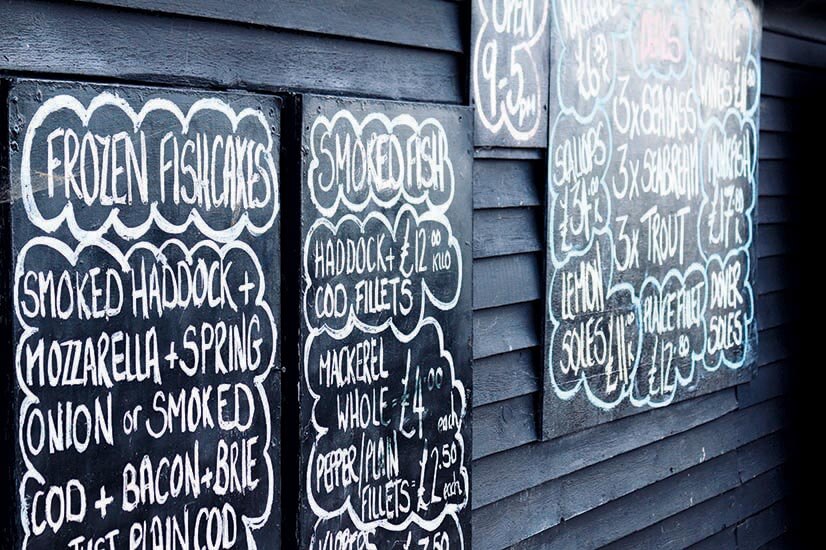 FROZEN FISHCAKES
SMOKED HADDOCK +
MOZZARELLA + SPRING
ONION or SMOKED
COD + BACON + BRIE
JUST PLAIN COD
SMOKED FISH
HADDOCK + £12.00 KILO
COD FILLETS
MACKEREL
WHOLE = £4.00 each
PEPPER/PLAIN
FILLETS = £2.50 each
KIPPERS
OPEN
9-5pm
MACKEREL
£6
SCALLOPS
LEMON
SOLES £11
3x SEABASS
3x SEABREAM
3x TROUT
PLAICE FILLET
£12
SKATE
WINGS
MONKFISH
£17
DOVER
SOLES